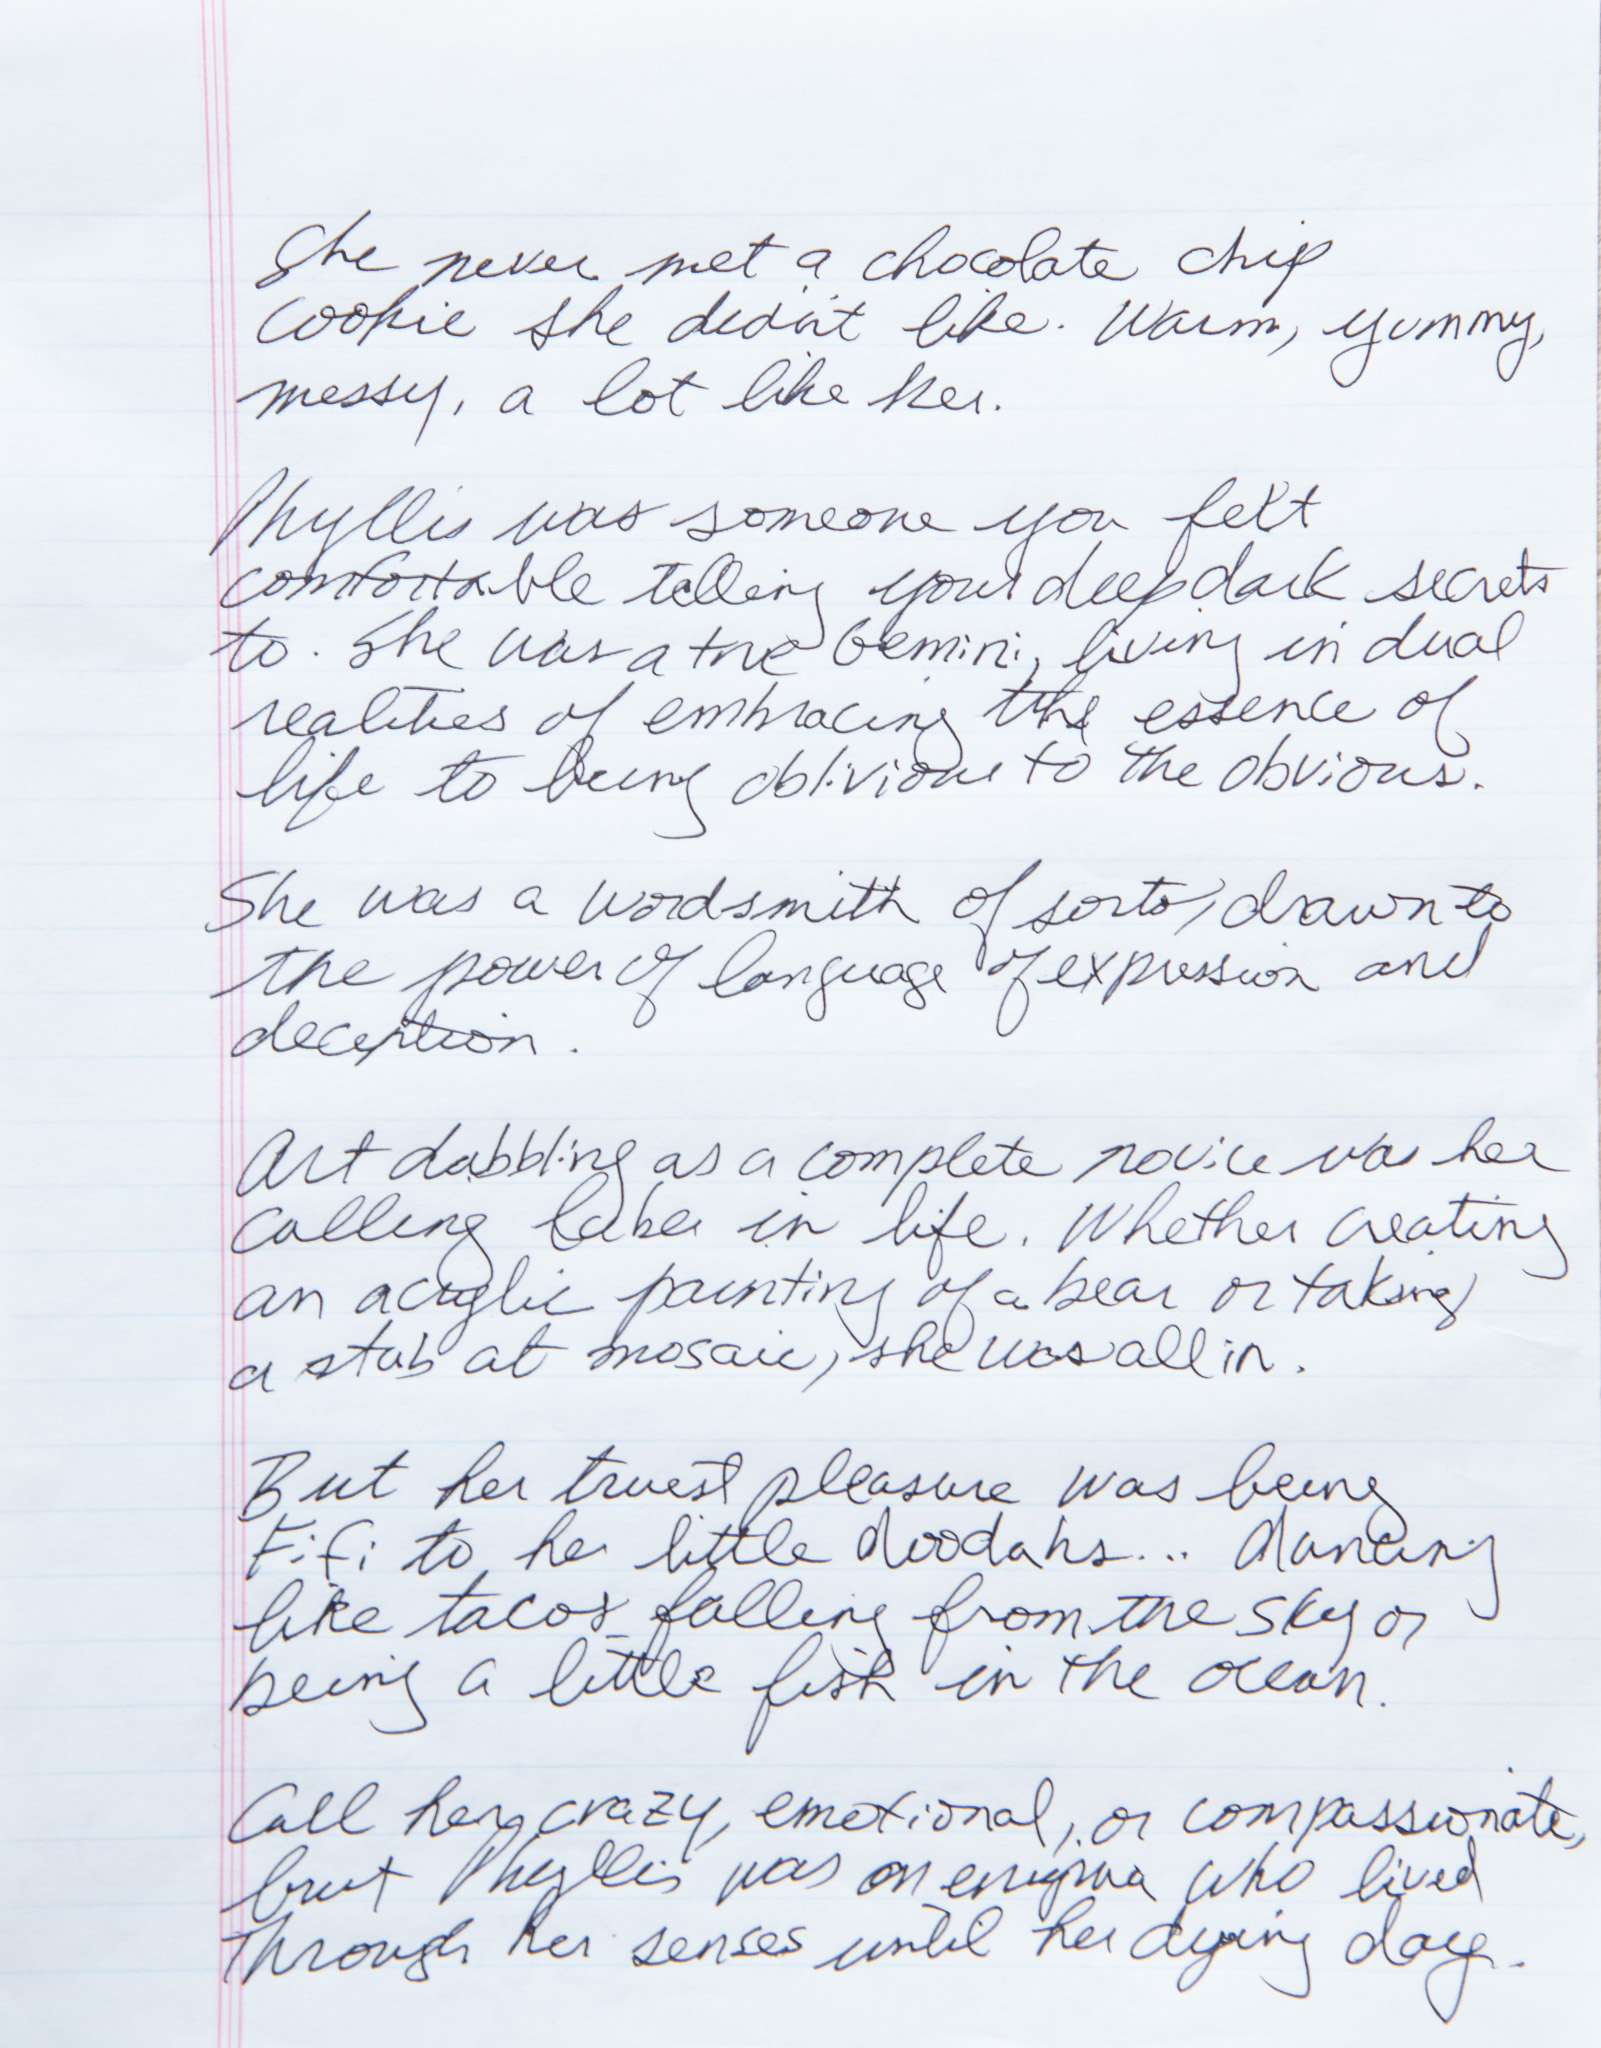 She never met a chocolate chip
cookie she didn't like. Warm, yummy,
messy, a lot like her.
Phyllis was someone you felt
comfortable telling your deep dark secrets
to. She was a true Gemini, living in dual
realities of embracing the essence of
life to being oblivious to the obvious.
She was a wordsmith of sorts, drawn to
the power of language of expression and
deception.
Art dabbling as a complete novice was her
calling later in life. Whether creating
an acrylic painting of a bear or taking
a stab at mosaic, she was all in.
But her truest pleasure was being
Fifi to her little doodahs... dancing
like tacos falling from the sky or
being a little fish in the ocean.
Call her crazy, emotional, or compassionate,
but Phyllis was an enigma who lived
through her senses until her dying day.